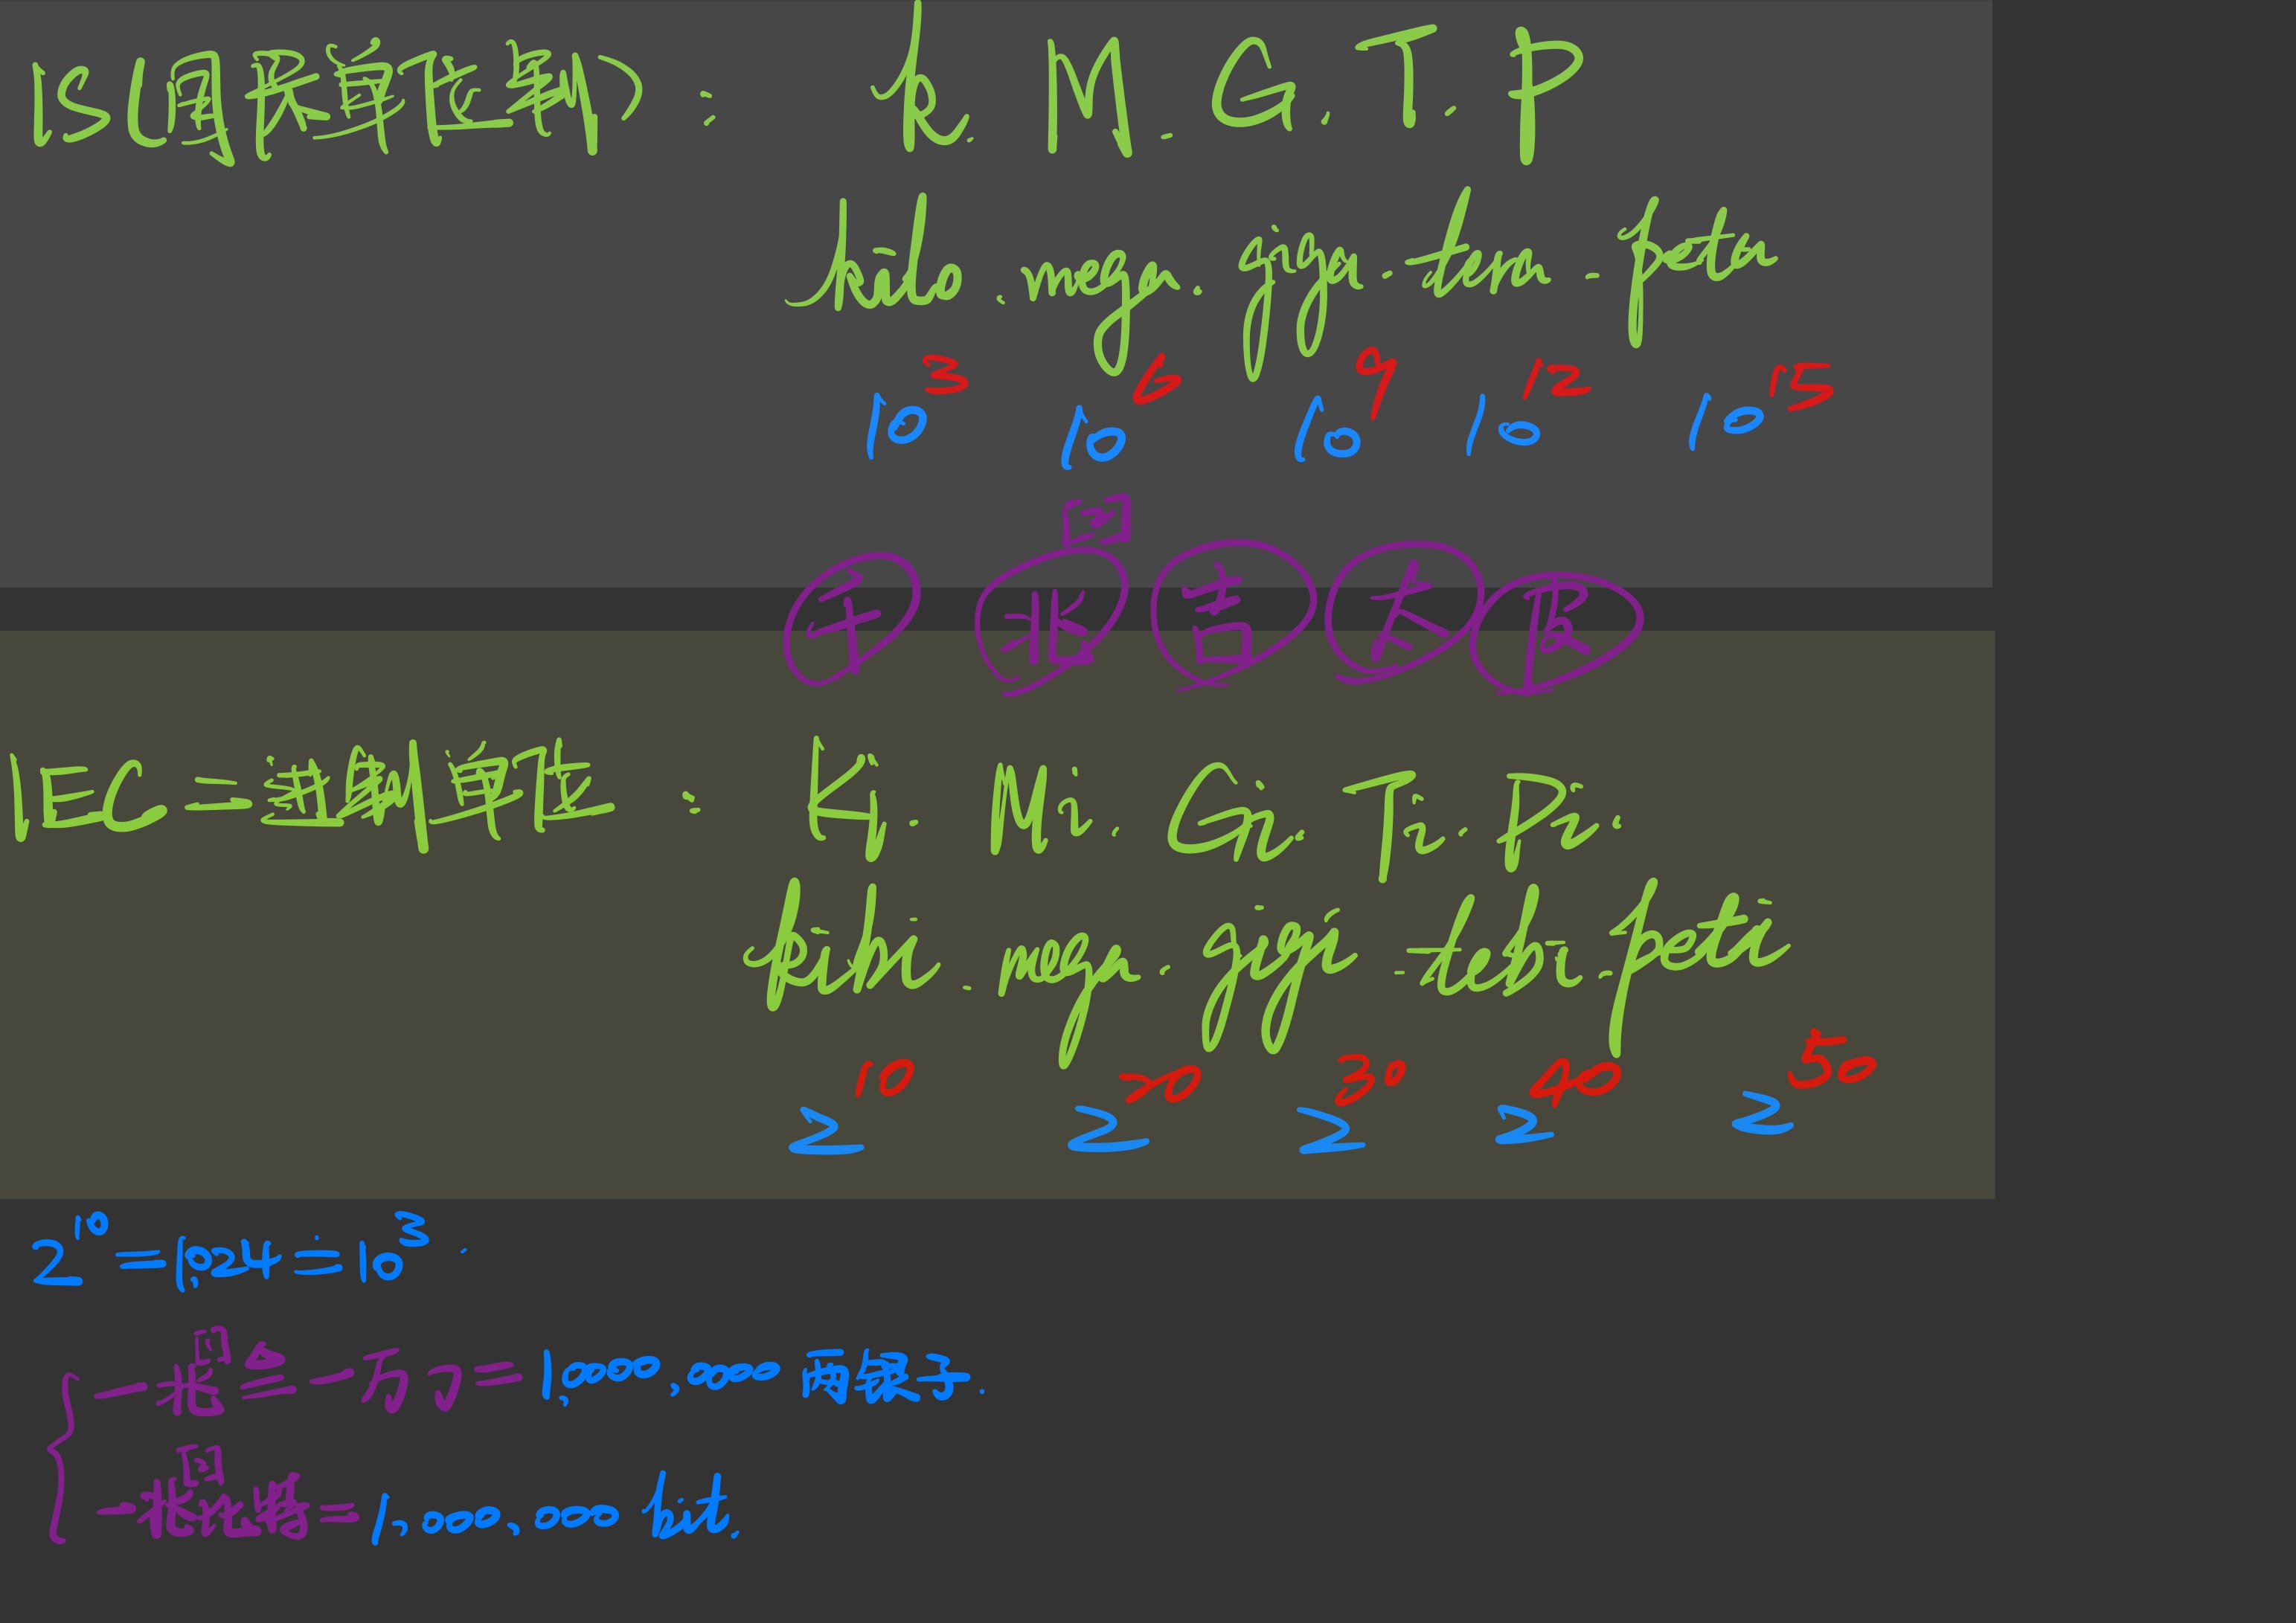 ISU国际单位制）： k. M. G. T. P
kilo. mega. giga. tera. peta
10³ 10⁶ 10⁹ 10¹² 10¹⁵
千 兆 吉 太 皮
IEC 二进制单位： Ki. Mi. Gi. Ti. Pi.
kibi. gigi. tebi. pebi
2¹⁰ 2²⁰ 2³⁰ 2⁴⁰ 2⁵⁰
2¹⁰=1,024≐10³.
一兆金=一百万=1,000,000两银子.
一兆比特=1,000,000 bit.